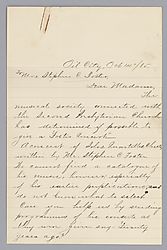 Oil City, Oct 10/95.
Mrs. Stephen C. Foster,
Dear Madam,
The
musical society connected with
the Second Presbyterian Church
has determined if possible to
give a Foster Concert.
A concert of Solos Quartettes Chorus
written by Mr. Stephen C. Foster
We cannot find a catalogue of
his music, however, especially
of his earlier publications, and
do not know what to select.
Can you help us by sending
programmes of his concerts as
they were given say twenty
years ago?